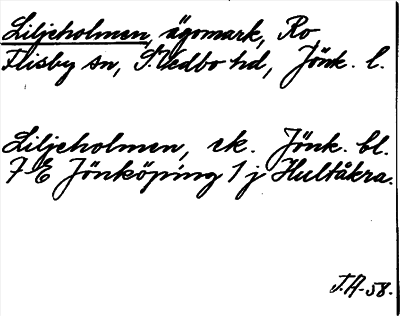 Liljeholmen, ägomark, Ro
Flisby sn, S. Vedbo hd, Jönk. l.
Liljeholmen, ek. Jönk. bl.
7 E Jönköping 1 j Hultåkra.
T.A-58.